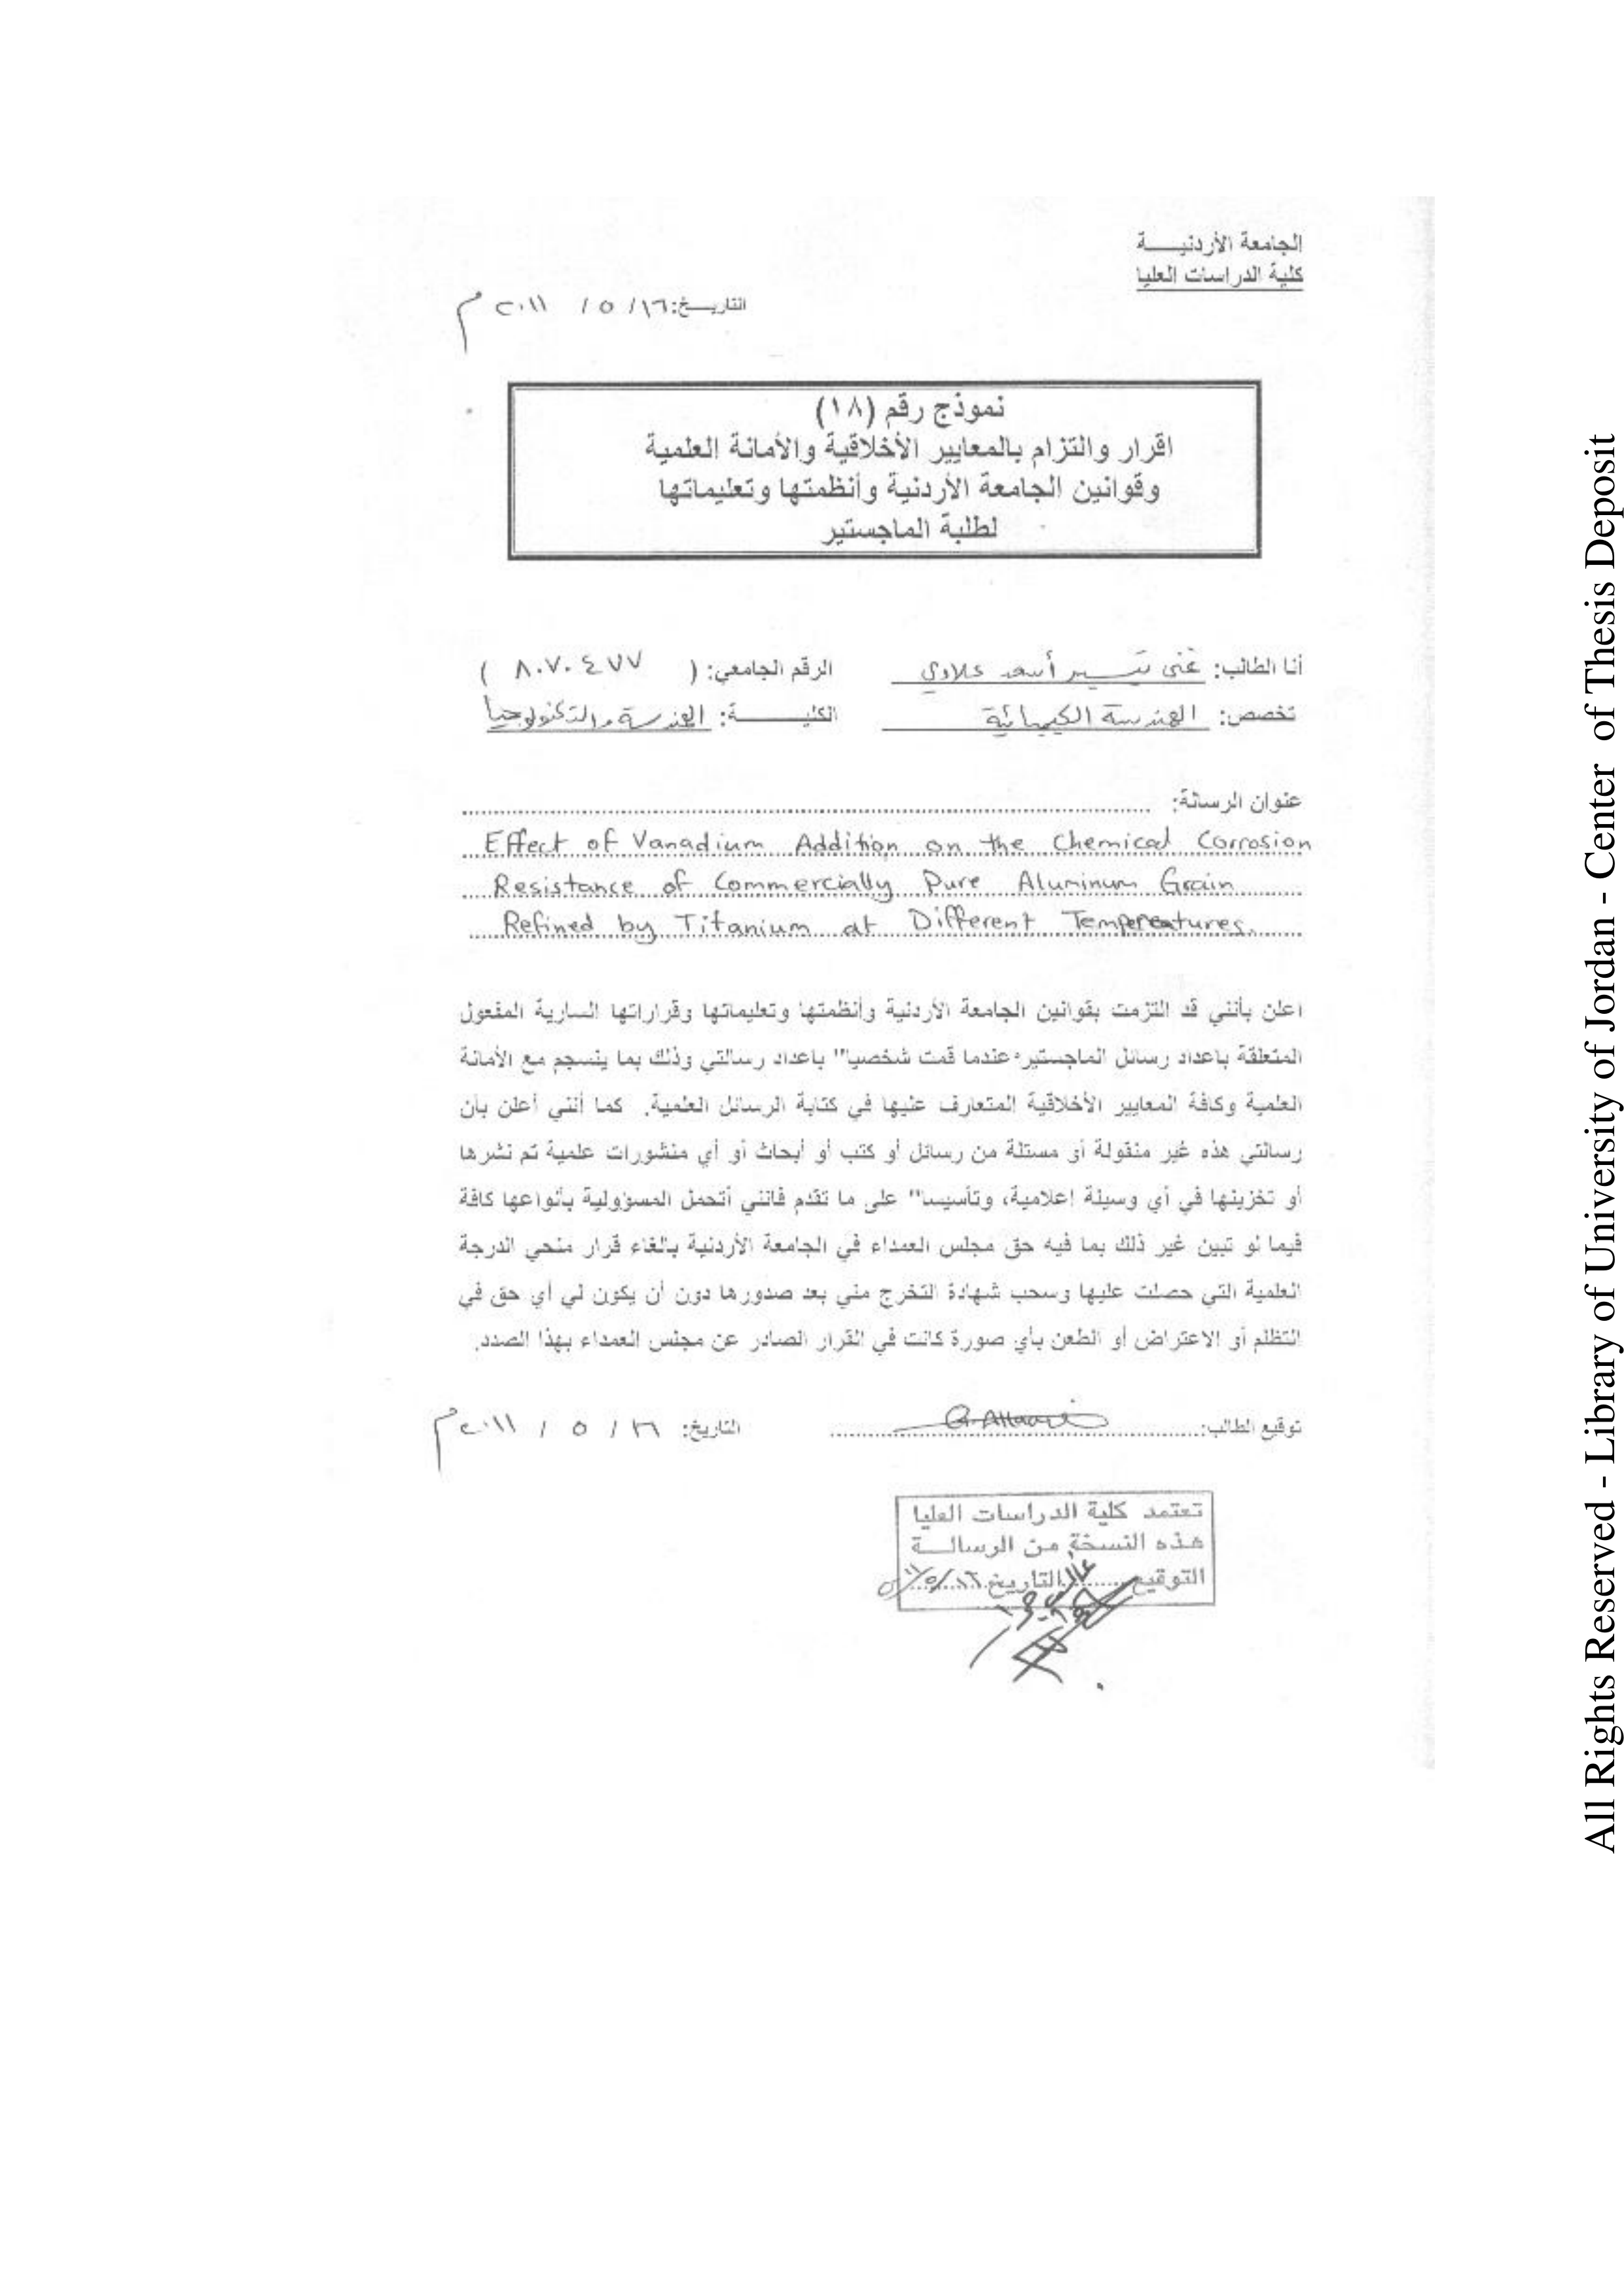 الجامعة الأردنيـــــة
كلية الدراسات العليا
التاريـــخ: ١٦/ ٥ / ٢٠١١ م
نموذج رقم (١٨)
اقرار والتزام بالمعايير الأخلاقية والأمانة العلمية
وقوانين الجامعة الأردنية وأنظمتها وتعليماتها
لطلبة الماجستير
أنا الطالب: غنى تيسير أسعد علاوي الرقم الجامعي: ( ٨٠٧٠٤٧٧ )
تخصص: الهندسة الكيميائية الكليـــــــة: الهندسة والتكنولوجيا
عنوان الرسالة:
Effect of Vanadium Addition on the Chemical Corrosion
Resistance of Commercially Pure Aluminum Grain
Refined by Titanium at Different Temperatures.
اعلن بأنني قد التزمت بقوانين الجامعة الأردنية وأنظمتها وتعليماتها وقراراتها السارية المفعول
المتعلقة باعداد رسائل الماجستير عندما قمت شخصيا" باعداد رسالتي وذلك بما ينسجم مع الأمانة
العلمية وكافة المعايير الأخلاقية المتعارف عليها في كتابة الرسائل العلمية. كما أنني أعلن بأن
رسالتي هذه غير منقولة أو مستلة من رسائل أو كتب أو أبحاث أو أي منشورات علمية تم نشرها
أو تخزينها في أي وسيلة إعلامية، وتأسيسا" على ما تقدم فانني أتحمل المسؤولية بأنواعها كافة
فيما لو تبين غير ذلك بما فيه حق مجلس العمداء في الجامعة الأردنية بالغاء قرار منحي الدرجة
العلمية التي حصلت عليها وسحب شهادة التخرج مني بعد صدورها دون أن يكون لي أي حق في
التظلم أو الاعتراض أو الطعن بأي صورة كانت في القرار الصادر عن مجلس العمداء بهذا الصدد.
توقيع الطالب: التاريخ: ١٦ / ٥ / ٢٠١١ م
تعتمد كلية الدراسات العليا
هذه النسخة من الرسالـــة
التوقيع التاريخ
All Rights Reserved - Library of University of Jordan - Center of Thesis Deposit